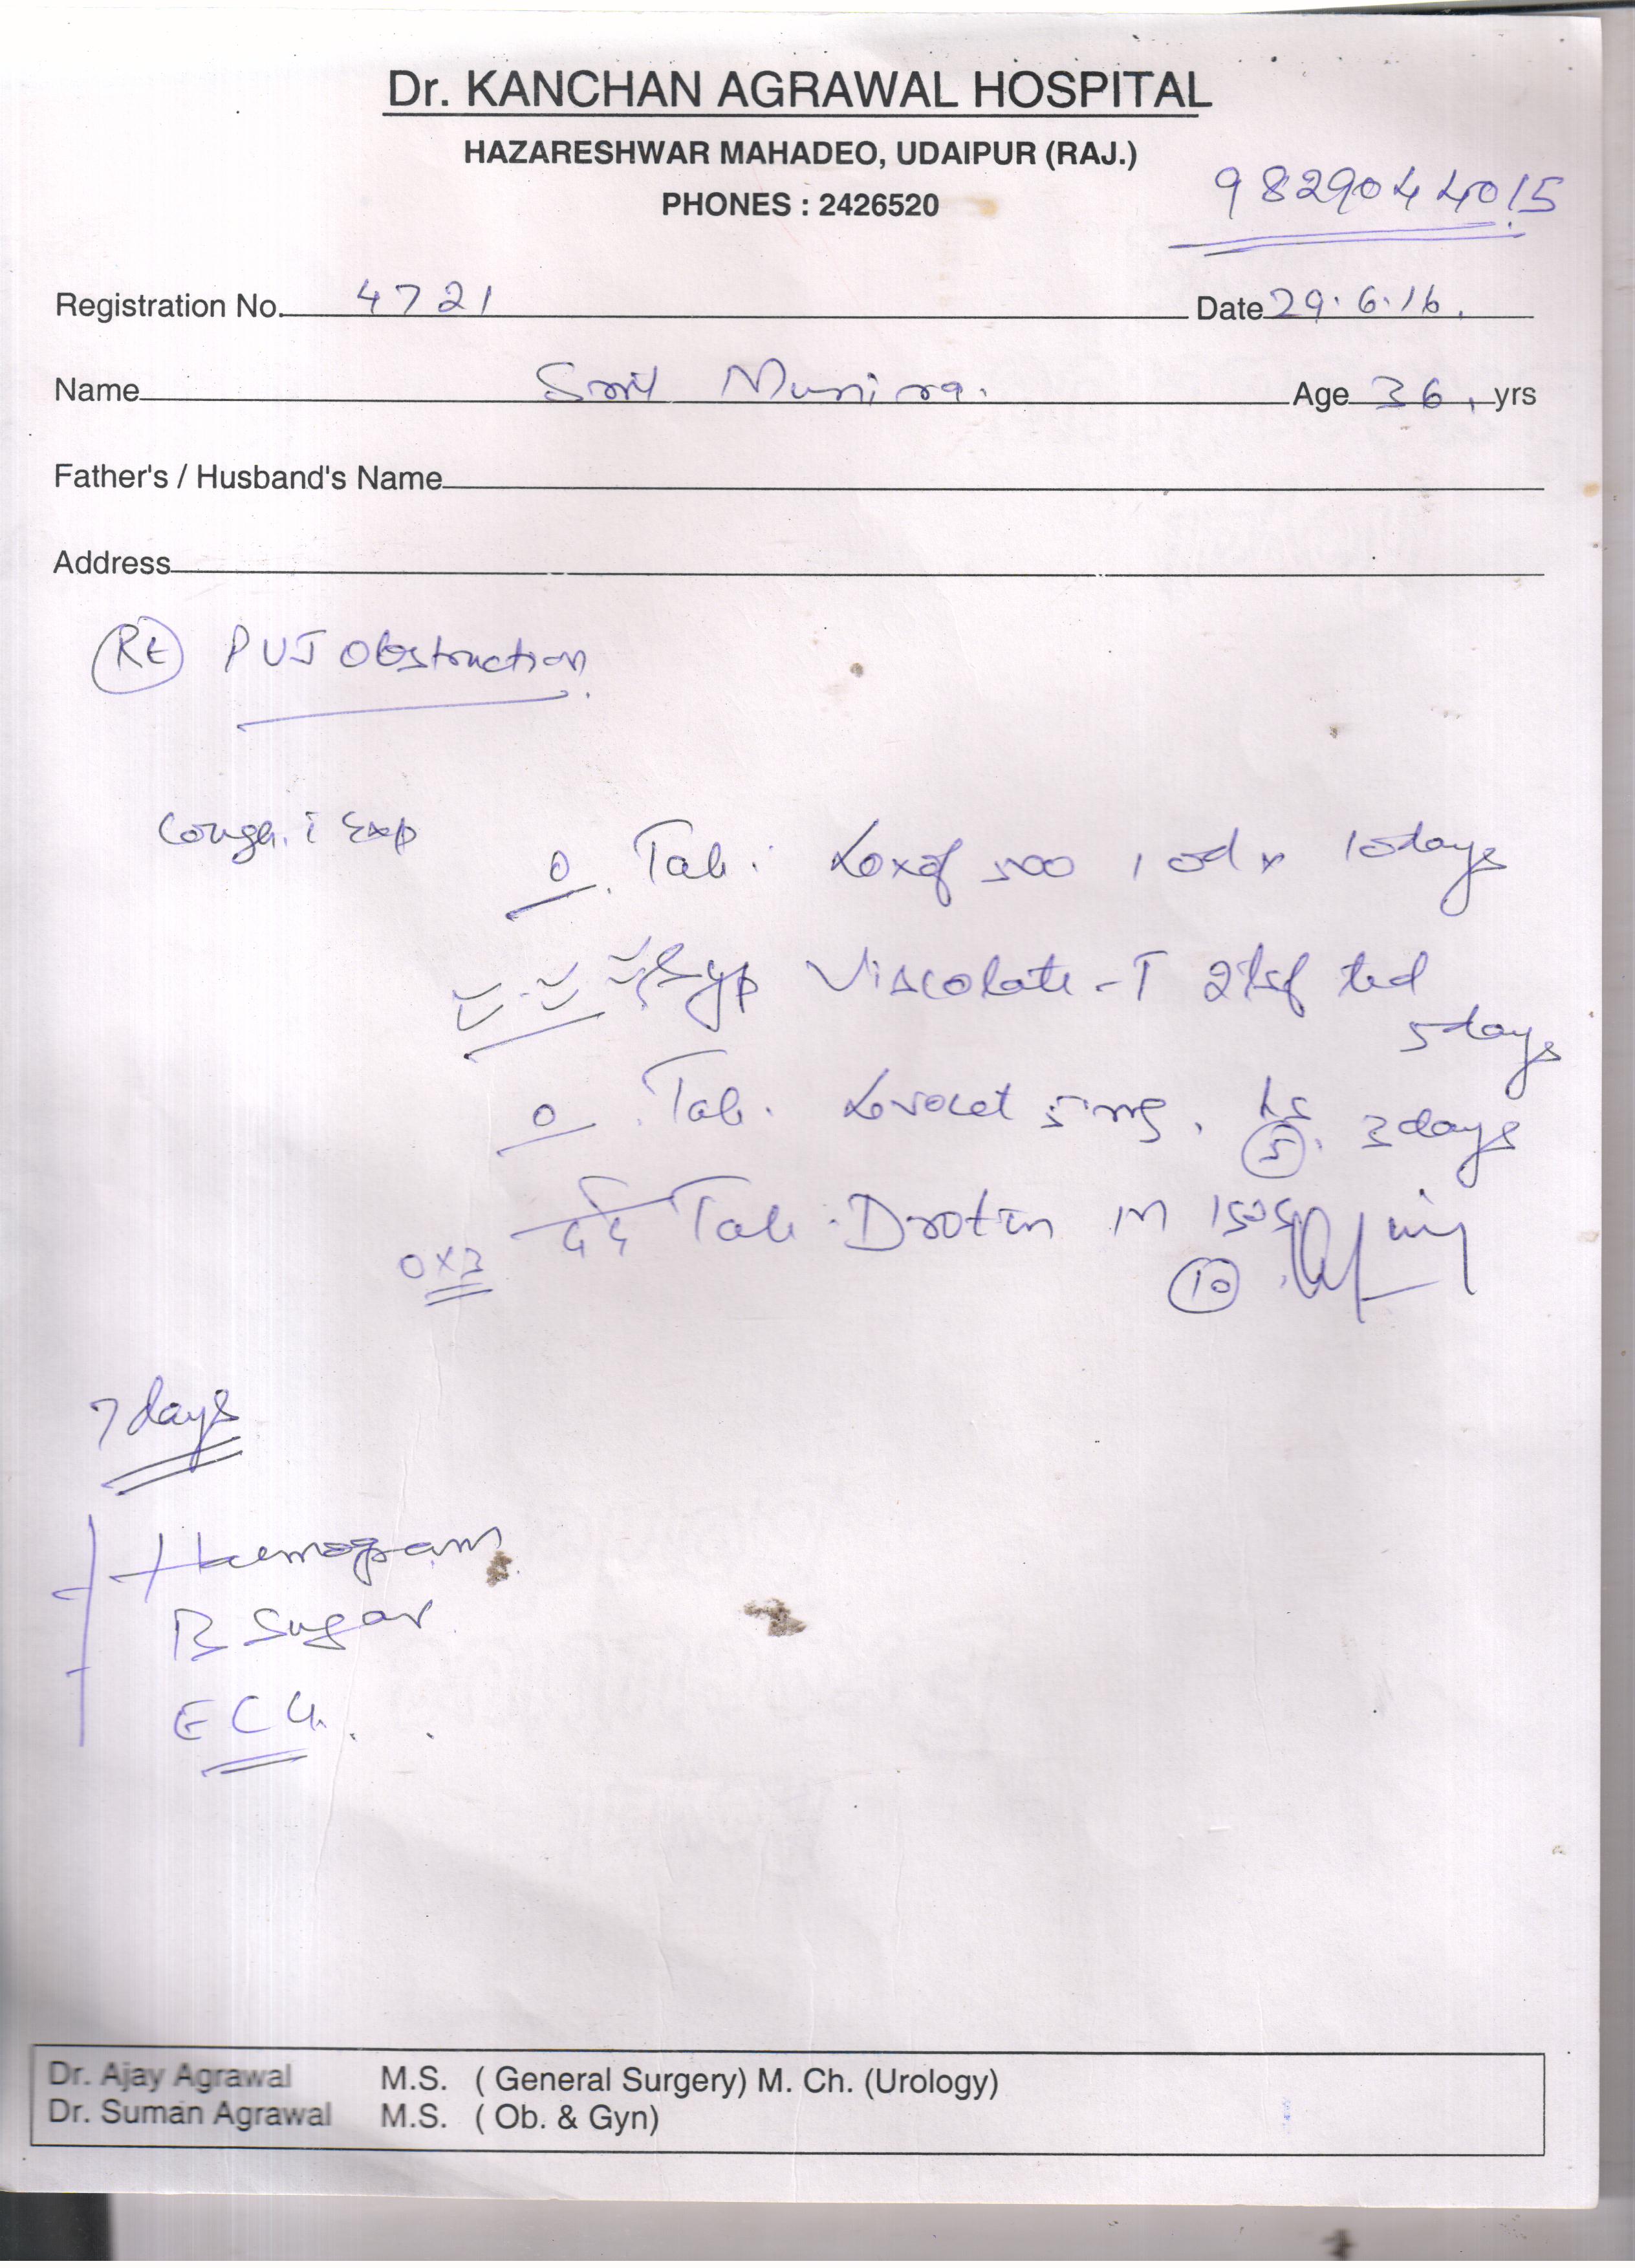 Dr. KANCHAN AGRAWAL HOSPITAL
HAZARESHWAR MAHADEO, UDAIPUR (RAJ.)
PHONES : 2426520
9829044015
Registration No. 4721 Date 29.6.16.
Name Smt Munira. Age 36, yrs
Father's / Husband's Name
Address
RE PUJ Obstruction
Cough. i Exp
0. Tab. Loxof 500 1 od x 10days
Syp Viscolate-T 2tsf tid
5days
0. Tab. Levocet 5mg. hs 3days
5
दर्द Tab. Drotin M 1 sos
0x3
10
7 days
Haemogram
B Sugar
ECG.
Dr. Ajay Agrawal M.S. ( General Surgery) M. Ch. (Urology)
Dr. Suman Agrawal M.S. ( Ob. & Gyn)